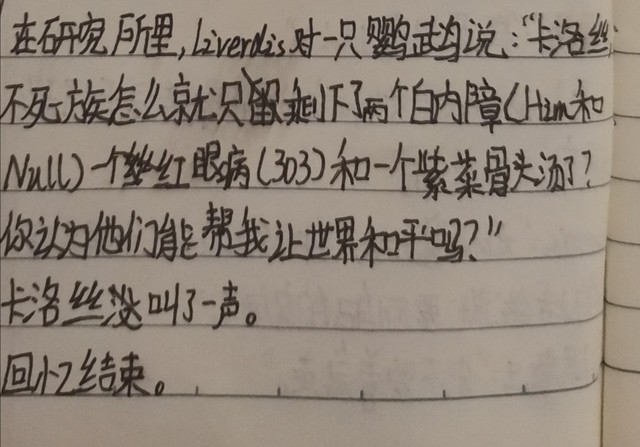 在研究所里,Liverdis对一只鹦鹉说:“卡洛丝
不死族怎么就只留剩下了两个白内障(Him和
Null)一个红眼病(303)和一个紫菜骨头汤了?
你认为他们能帮我让世界和平吗?”
卡洛丝没叫了一声。
回忆结束。